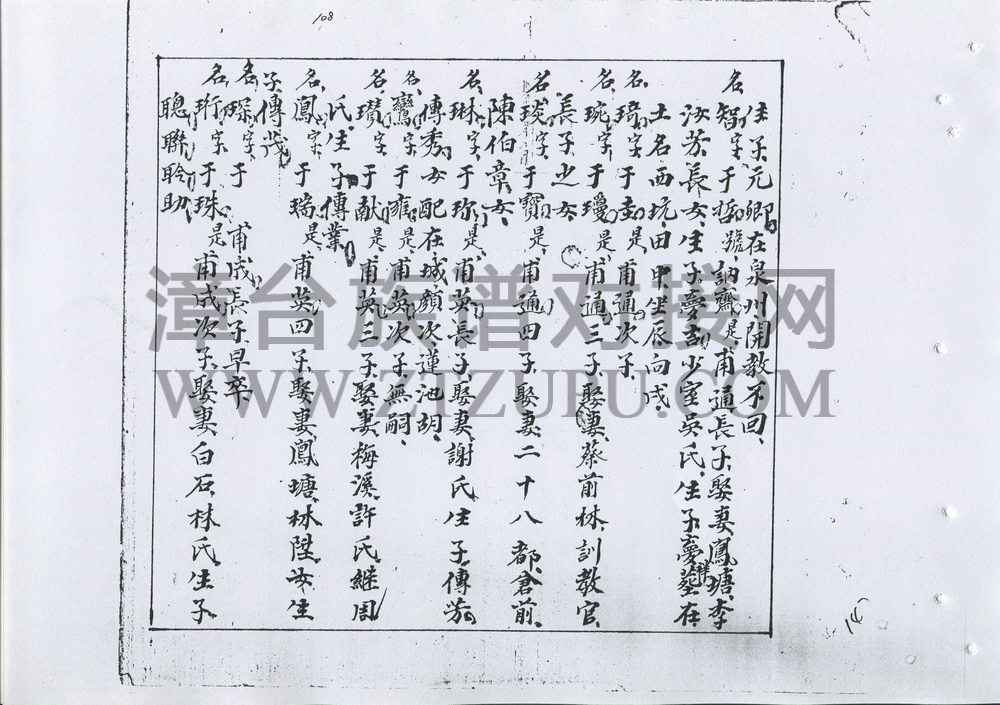 108
生子元卿在泉州開教不回
名智字于哲號訥齋是甫通長子娶妻鳳塘李
汝芳長女生子夢吉少室吳氏生子夢葬在
土名西坑田申坐辰向戌
名琦字于圭是甫通次子
名琬字于瓊是甫通三子娶妻蔡前林訓教官
長子之女
名琰字于寶是甫通四子娶妻二十八都倉前
陳伯章女
名琳字于珎是甫英長子娶妻謝氏生子傳芳
傳秀女配在城顏次蓮池胡
名鸞字于雍是甫英次子無嗣
名瓚字于献是甫英三子娶妻梅溪許氏継周
氏生子傳業
名鳳字于瑞是甫英四子娶妻鳳塘林陞女生
子傳茂
名琛字于甫成長子早卒
名珩字于珠是甫成次子娶妻白石林氏生子
聰聯聆助
14
漳台族谱对接网
WWW.ZTZUPU.COM